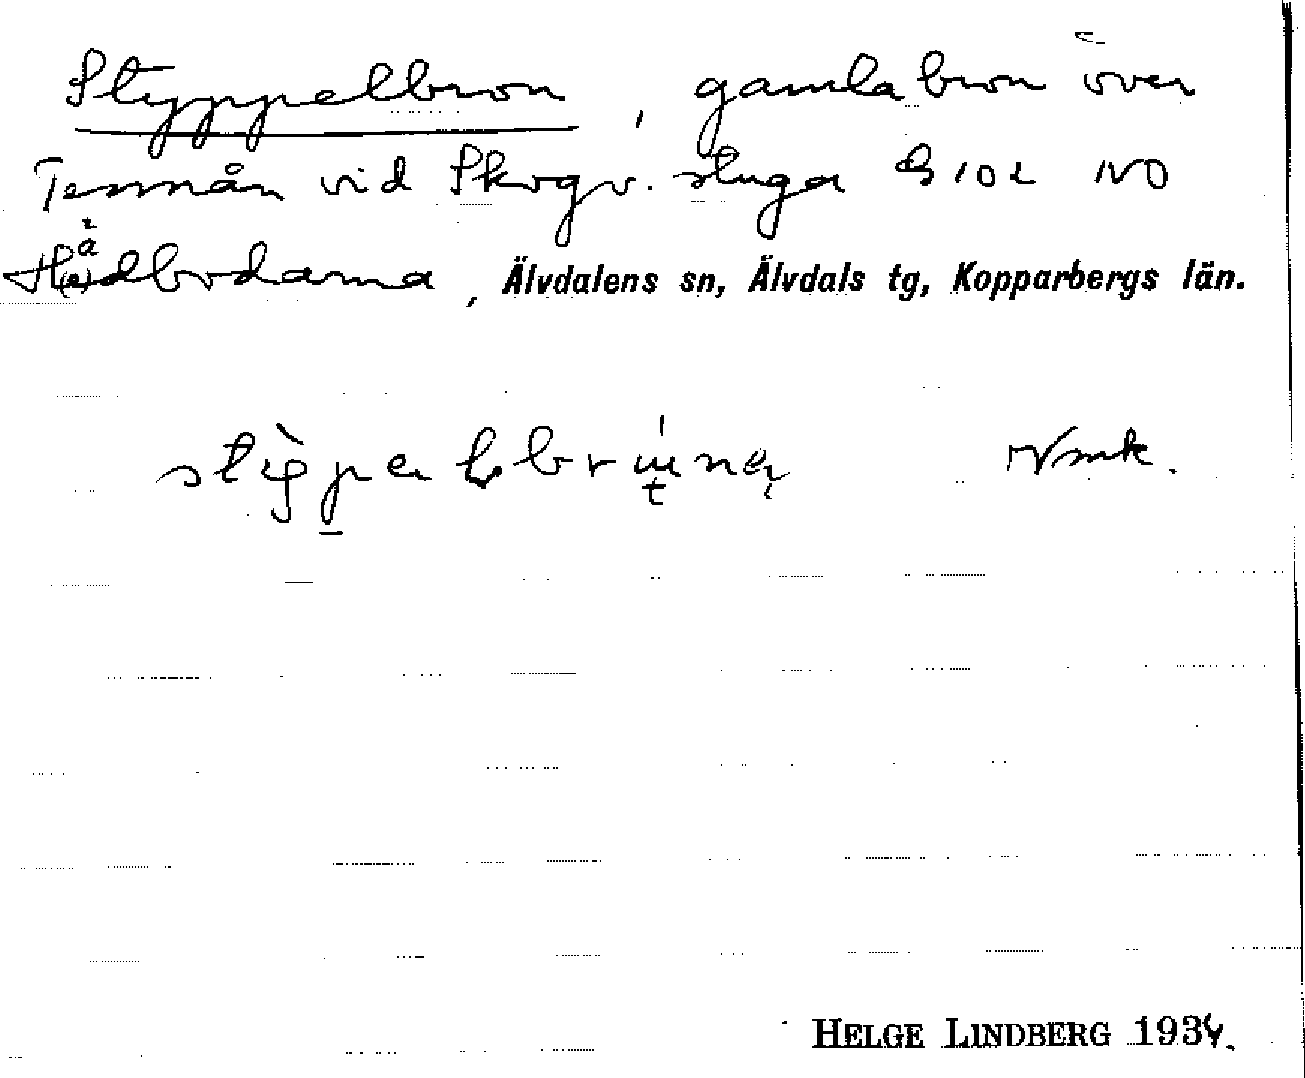 Styppelbron, gamla bron över
Tennån vid Skogv. stuga G 102 NO
Hådbodarna, Älvdalens sn, Älvdals tg, Kopparbergs län.
Nmk.
HELGE LINDBERG 1934.